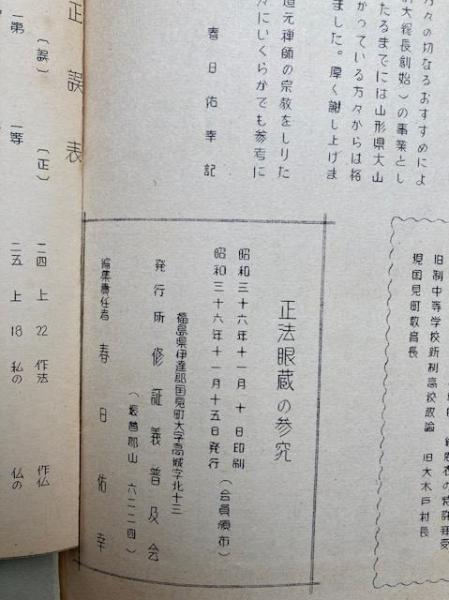 旧制中等学校新制高校教諭　旧大木戸村長
現国見町教育長
方々の切なるおすすめによ
大総長創始）の事業とし
たるまでには山形県大山
かっている方々からは格
ました。厚く謝し上げま
道元禅師の宗教をしりた
々にいくらかでも参考に
春日佑幸記
正法眼蔵の参究
昭和三十六年十一月　十日印刷
昭和三十六年十一月十五日発行（会員頒布）
福島県伊達郡国見町大字高城字北十三
発行所　修証義普及会
編集責任者　春日佑幸
正誤表
（誤）　（正）
一第　一等
二四　上　22　作法　作仏
二五　上　18　私の　仏の